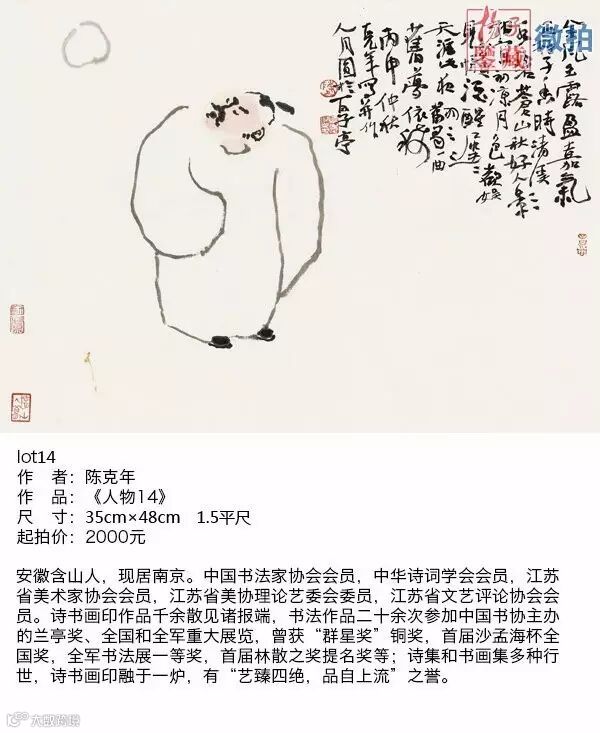 微拍
鉴藏
金风玉露盈嘉气
丙申仲秋
克年写并作
人月圆于百子亭
lot14
作 者：陈克年
作 品：《人物14》
尺 寸：35cm×48cm 1.5平尺
起拍价：2000元
安徽含山人，现居南京。中国书法家协会会员，中华诗词学会会员，江苏
省美术家协会会员，江苏省美协理论艺委会委员，江苏省文艺评论协会会
员。诗书画印作品千余散见诸报端，书法作品二十余次参加中国书协主办
的兰亭奖、全国和全军重大展览，曾获“群星奖”铜奖，首届沙孟海杯全
国奖，全军书法展一等奖，首届林散之奖提名奖等；诗集和书画集多种行
世，诗书画印融于一炉，有“艺臻四绝，品自上流”之誉。